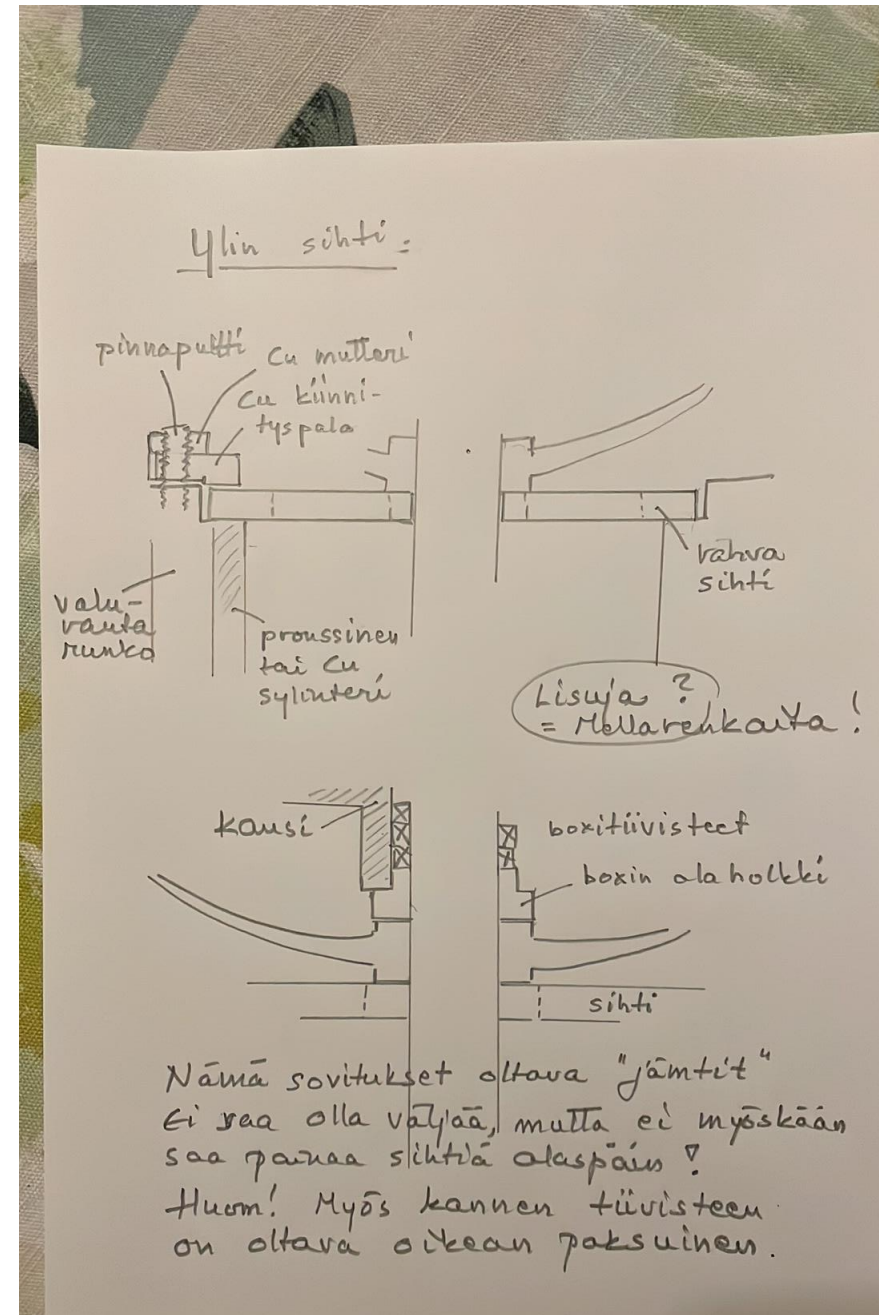 Ylin sihti:
pinnapultti
Cu mutteri
Cu kiinni-
tyspala
valu-
rauta
runko
proussinen
tai Cu
sylinteri
vahva
sihti
Lisuja?
= Mellarenkaita!
kansi
boxitiivisteet
boxin alaholkki
sihti
Nämä sovitukset oltava "jämtit"
Ei saa olla väljää, mutta ei myöskään
saa painaa sihtiä alaspäin!
Huom! Myös kannen tiivisteen
on oltava oikean paksuinen.